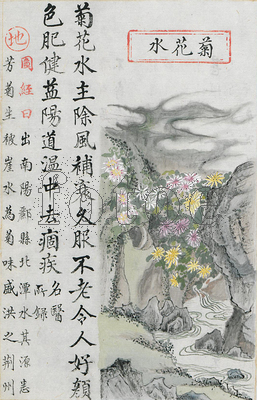 菊花水
菊花水主除風補衰久服不老令人好顏
色肥健益陽道溫中去痼疾名醫
所錄
地
圖經曰出南陽酈縣北潭水其源悉
芳菊生被崖水為菊味盛洪之荊州